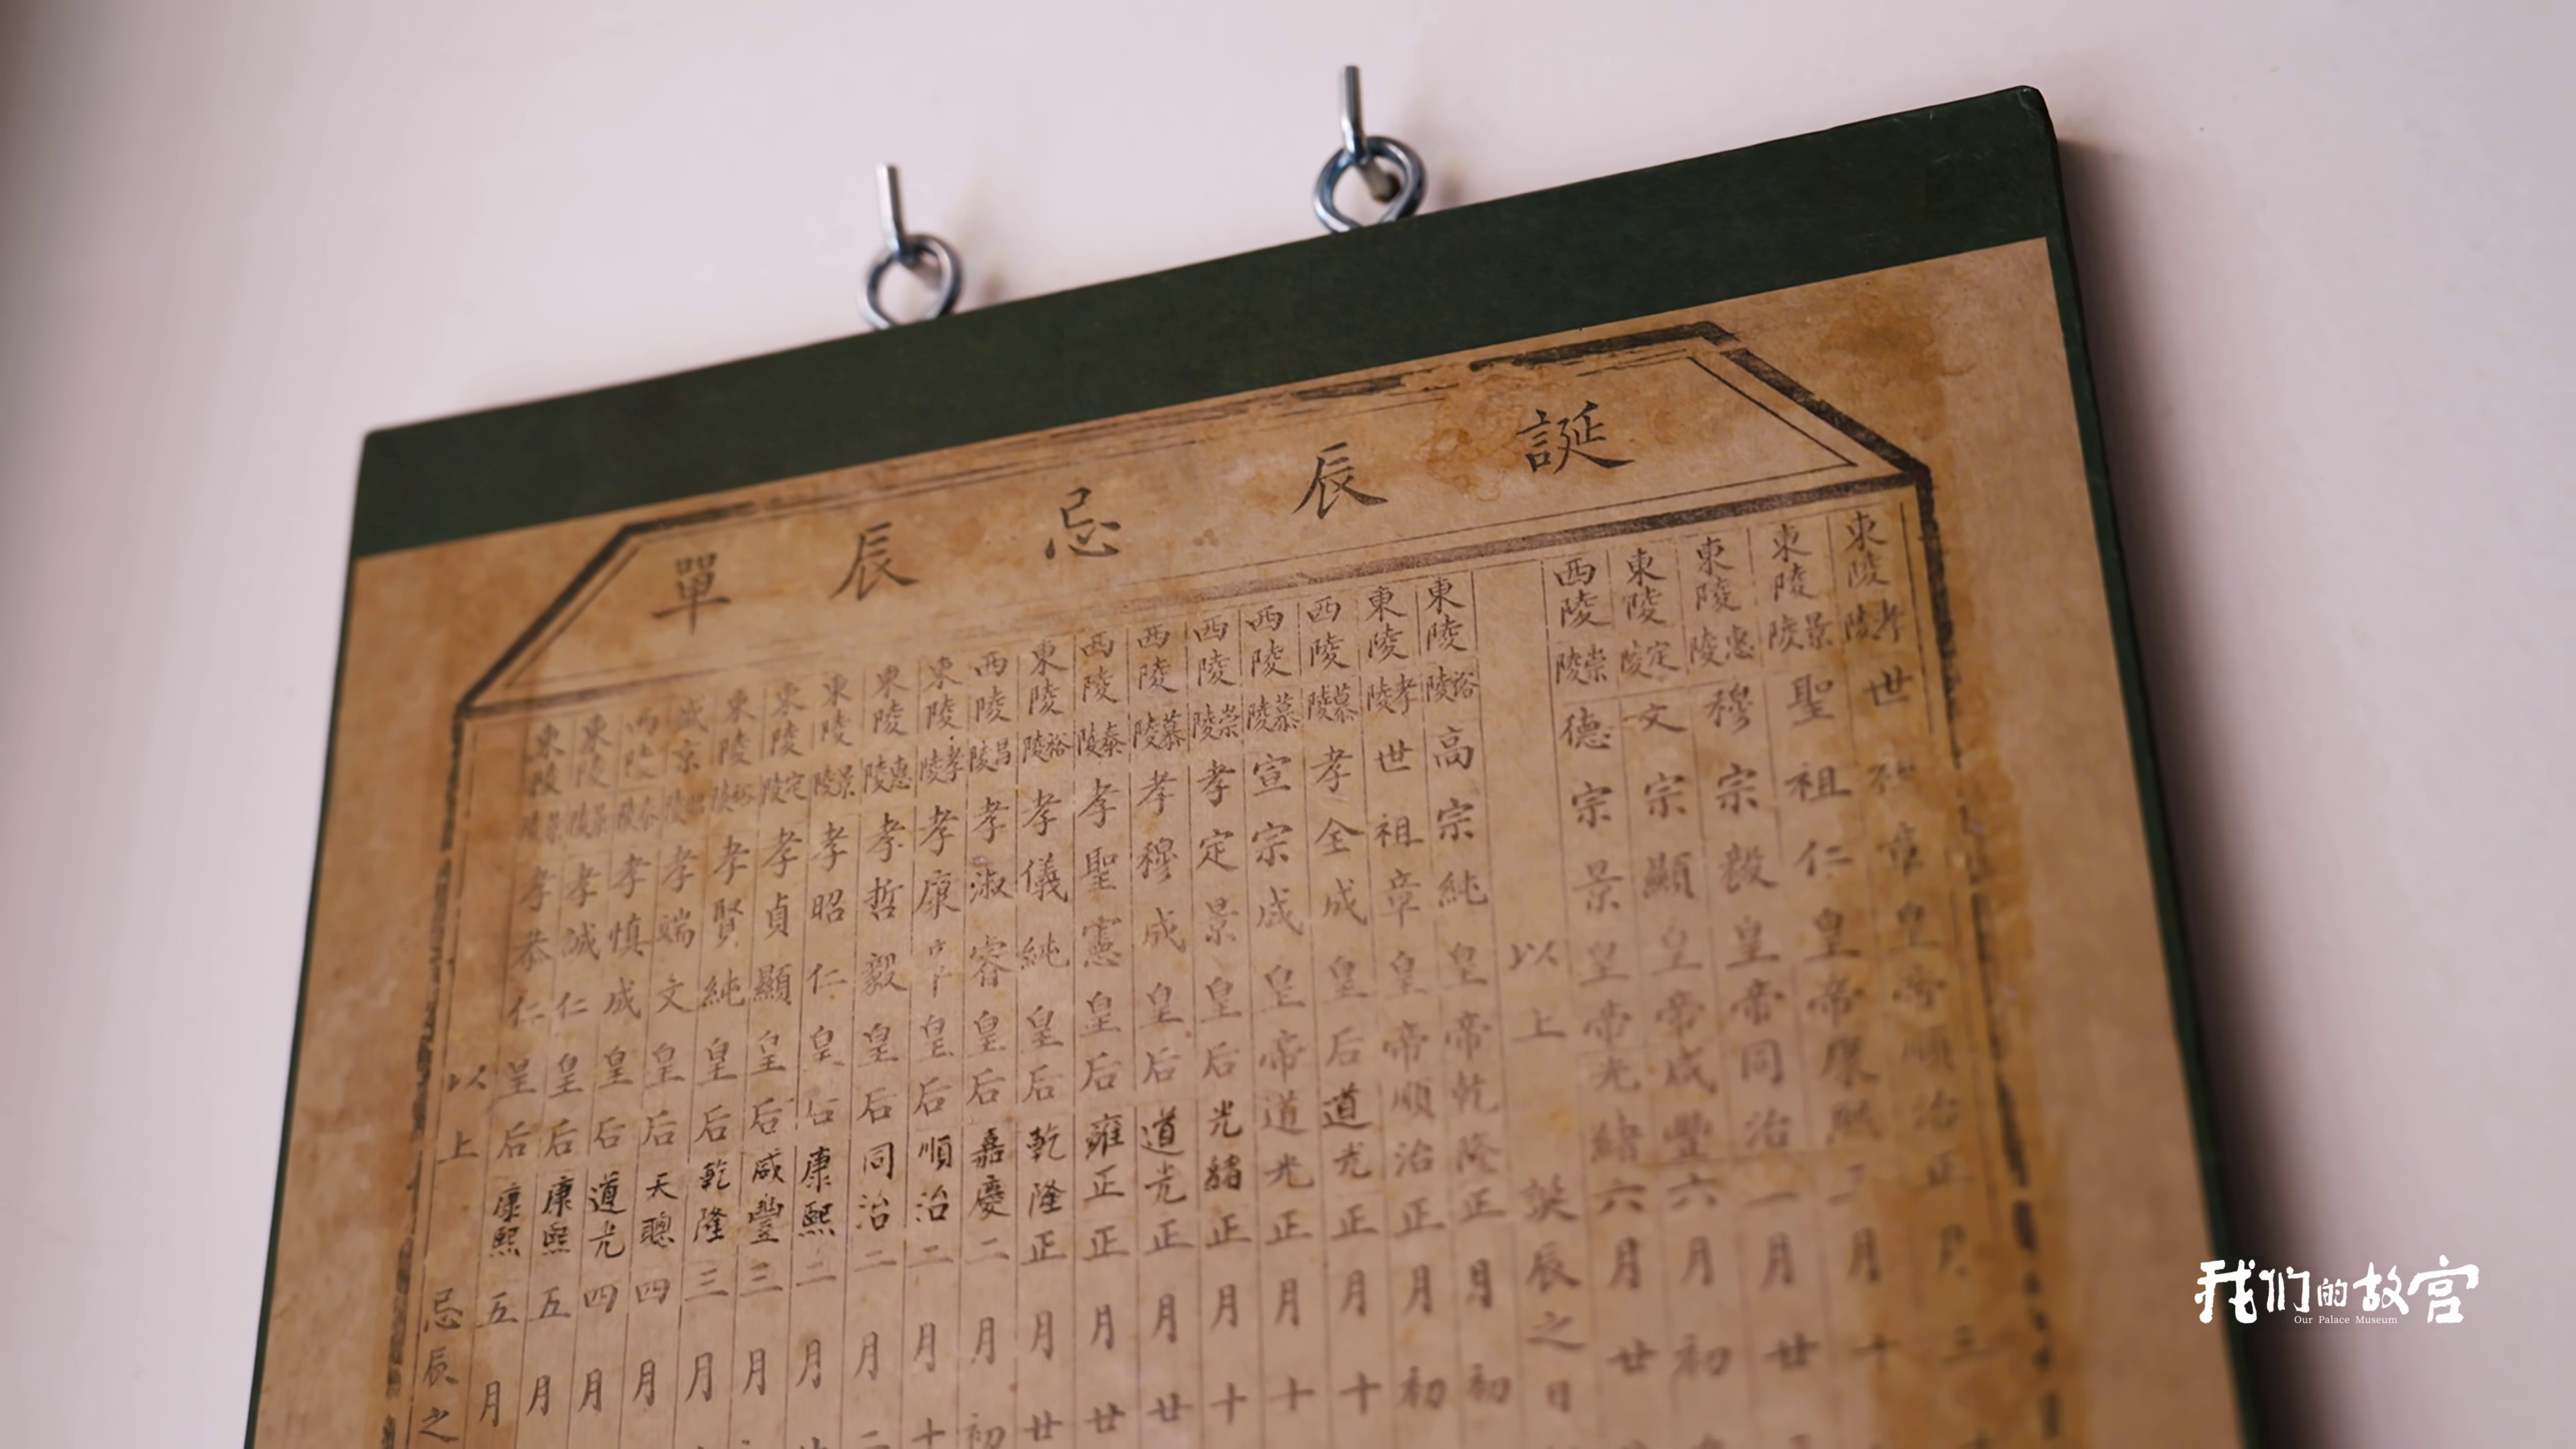 誕辰忌辰單
東陵孝陵世祖章皇帝順治正月三
東陵景陵聖祖仁皇帝康熙三月十
東陵惠陵穆宗毅皇帝同治一月廿
東陵定陵文宗顯皇帝咸豐六月初
西陵崇陵德宗景皇帝光緒六月廿
以上誕辰之日
東陵裕陵高宗純皇帝乾隆正月初
東陵孝陵世祖章皇帝順治正月初
西陵慕陵孝全成皇后道光正月十
西陵慕陵宣宗成皇帝道光正月十
西陵崇陵孝定景皇后光緒正月十
西陵慕陵孝穆成皇后道光正月廿
西陵泰陵孝聖憲皇后雍正正月廿
東陵裕陵孝儀純皇后乾隆正月廿
西陵昌陵孝淑睿皇后嘉慶二月初
東陵孝陵孝康章皇后順治二月十
東陵惠陵孝哲毅皇后同治二月二
東陵景陵孝昭仁皇后康熙二月
東陵定陵孝貞顯皇后咸豐三月
東陵裕陵孝賢純皇后乾隆三月
盛京昭陵孝端文皇后天聰四月
西陵慕陵孝慎成皇后道光四月
東陵景陵孝誠仁皇后康熙五月
東陵景陵孝恭仁皇后康熙五月
以上忌辰之
我们的故宫
Our Palace Museum